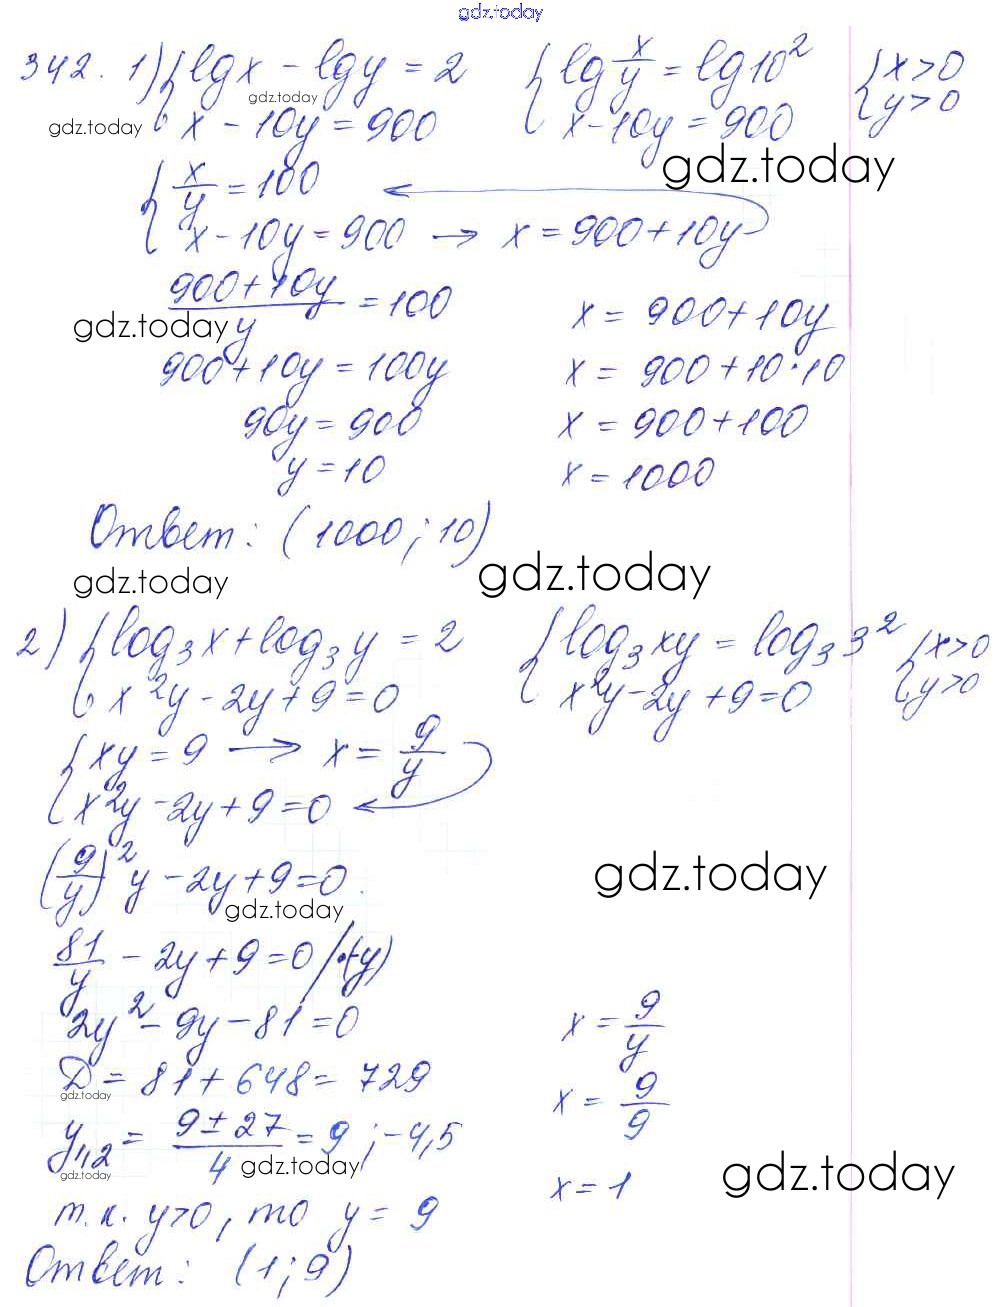 gdz.today
342. 1) { lg x − lg y = 2   { lg x/y = lg 10²   { x > 0
gdz.today
x − 10y = 900   x − 10y = 900   y > 0
gdz.today
gdz.today
{ x/y = 100
x − 10y = 900 → x = 900 + 10y
(900 + 10y)/y = 100   x = 900 + 10y
gdz.today
900 + 10y = 100y   x = 900 + 10 · 10
90y = 900   x = 900 + 100
y = 10   x = 1000
Ответ: (1000; 10)
gdz.today
gdz.today
2) { log₃ x + log₃ y = 2   { log₃ xy = log₃ 3²   { x > 0
x²y − 2y + 9 = 0   x²y − 2y + 9 = 0   y > 0
{ xy = 9 → x = 9/y
x²y − 2y + 9 = 0
(9/y)² y − 2y + 9 = 0
gdz.today
gdz.today
81/y − 2y + 9 = 0 / · (−y)
2y² − 9y − 81 = 0   x = 9/y
Д = 81 + 648 = 729   x = 9/9
gdz.today
y₁,₂ = (9 ± 27)/4 = 9 ; −4,5
gdz.today
gdz.today
x = 1
gdz.today
т.к. y > 0, то y = 9
Ответ: (1; 9)